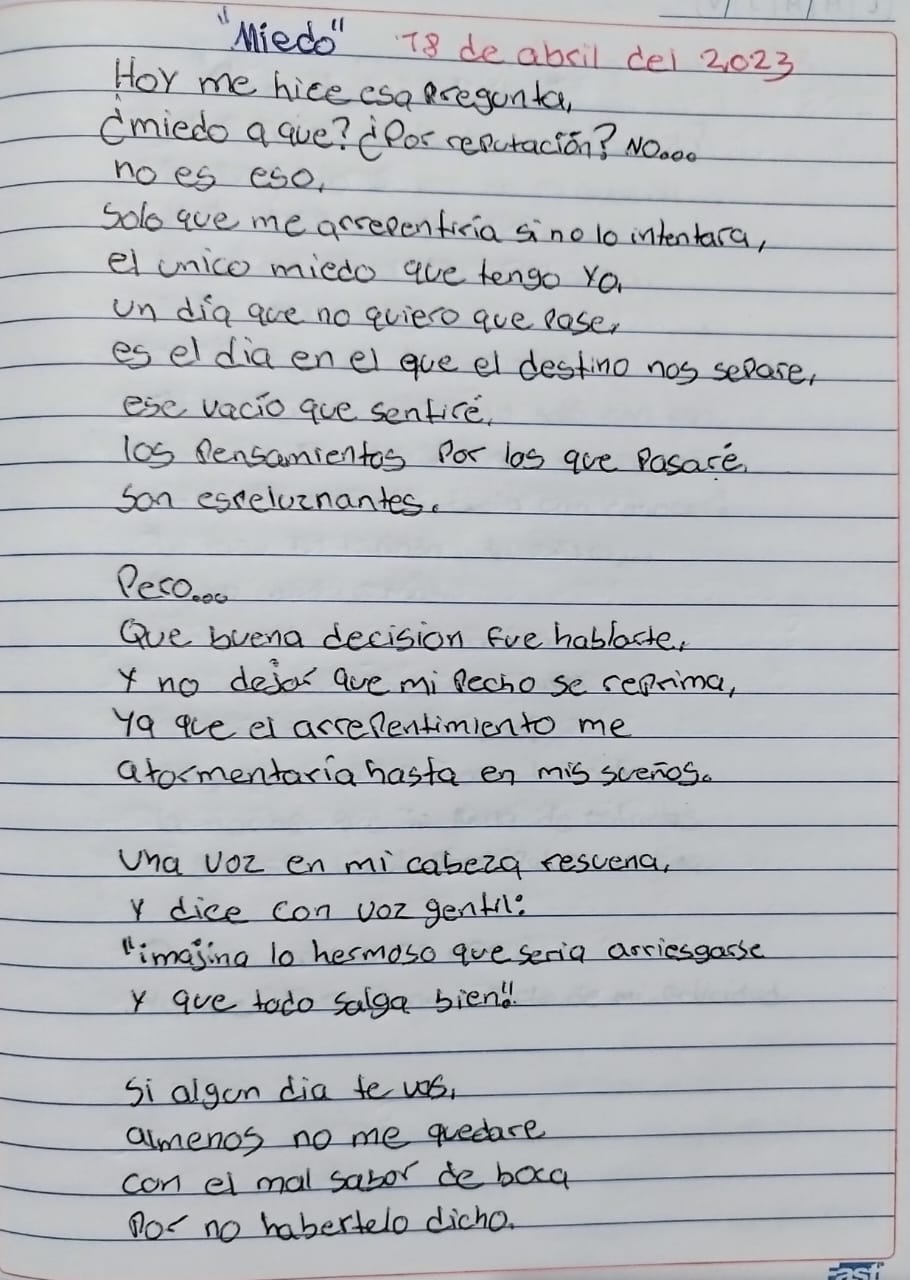 "Miedo" 18 de abril del 2,023
Hoy me hice esa pregunta,
¿miedo a que? ¿Por reputación? NO....
no es eso,
Solo que me arrepentiria si no lo intentara,
el unico miedo que tengo yo,
un día que no quiero que pase,
es el dia en el que el destino nos separe,
ese vacío que sentiré,
los pensamientos por los que pasaré,
son espeluznantes.
Pero....
Que buena decision fue hablarte,
y no dejar que mi pecho se reprima,
ya que el arrepentimiento me
atormentaría hasta en mis sueños.
Una voz en mi cabeza resuena,
y dice con voz gentil:
"imajina lo hermoso que seria arriesgarse
y que todo salga bien".
Si algun dia te vas,
almenos no me quedare
con el mal sabor de boca
por no habertelo dicho.